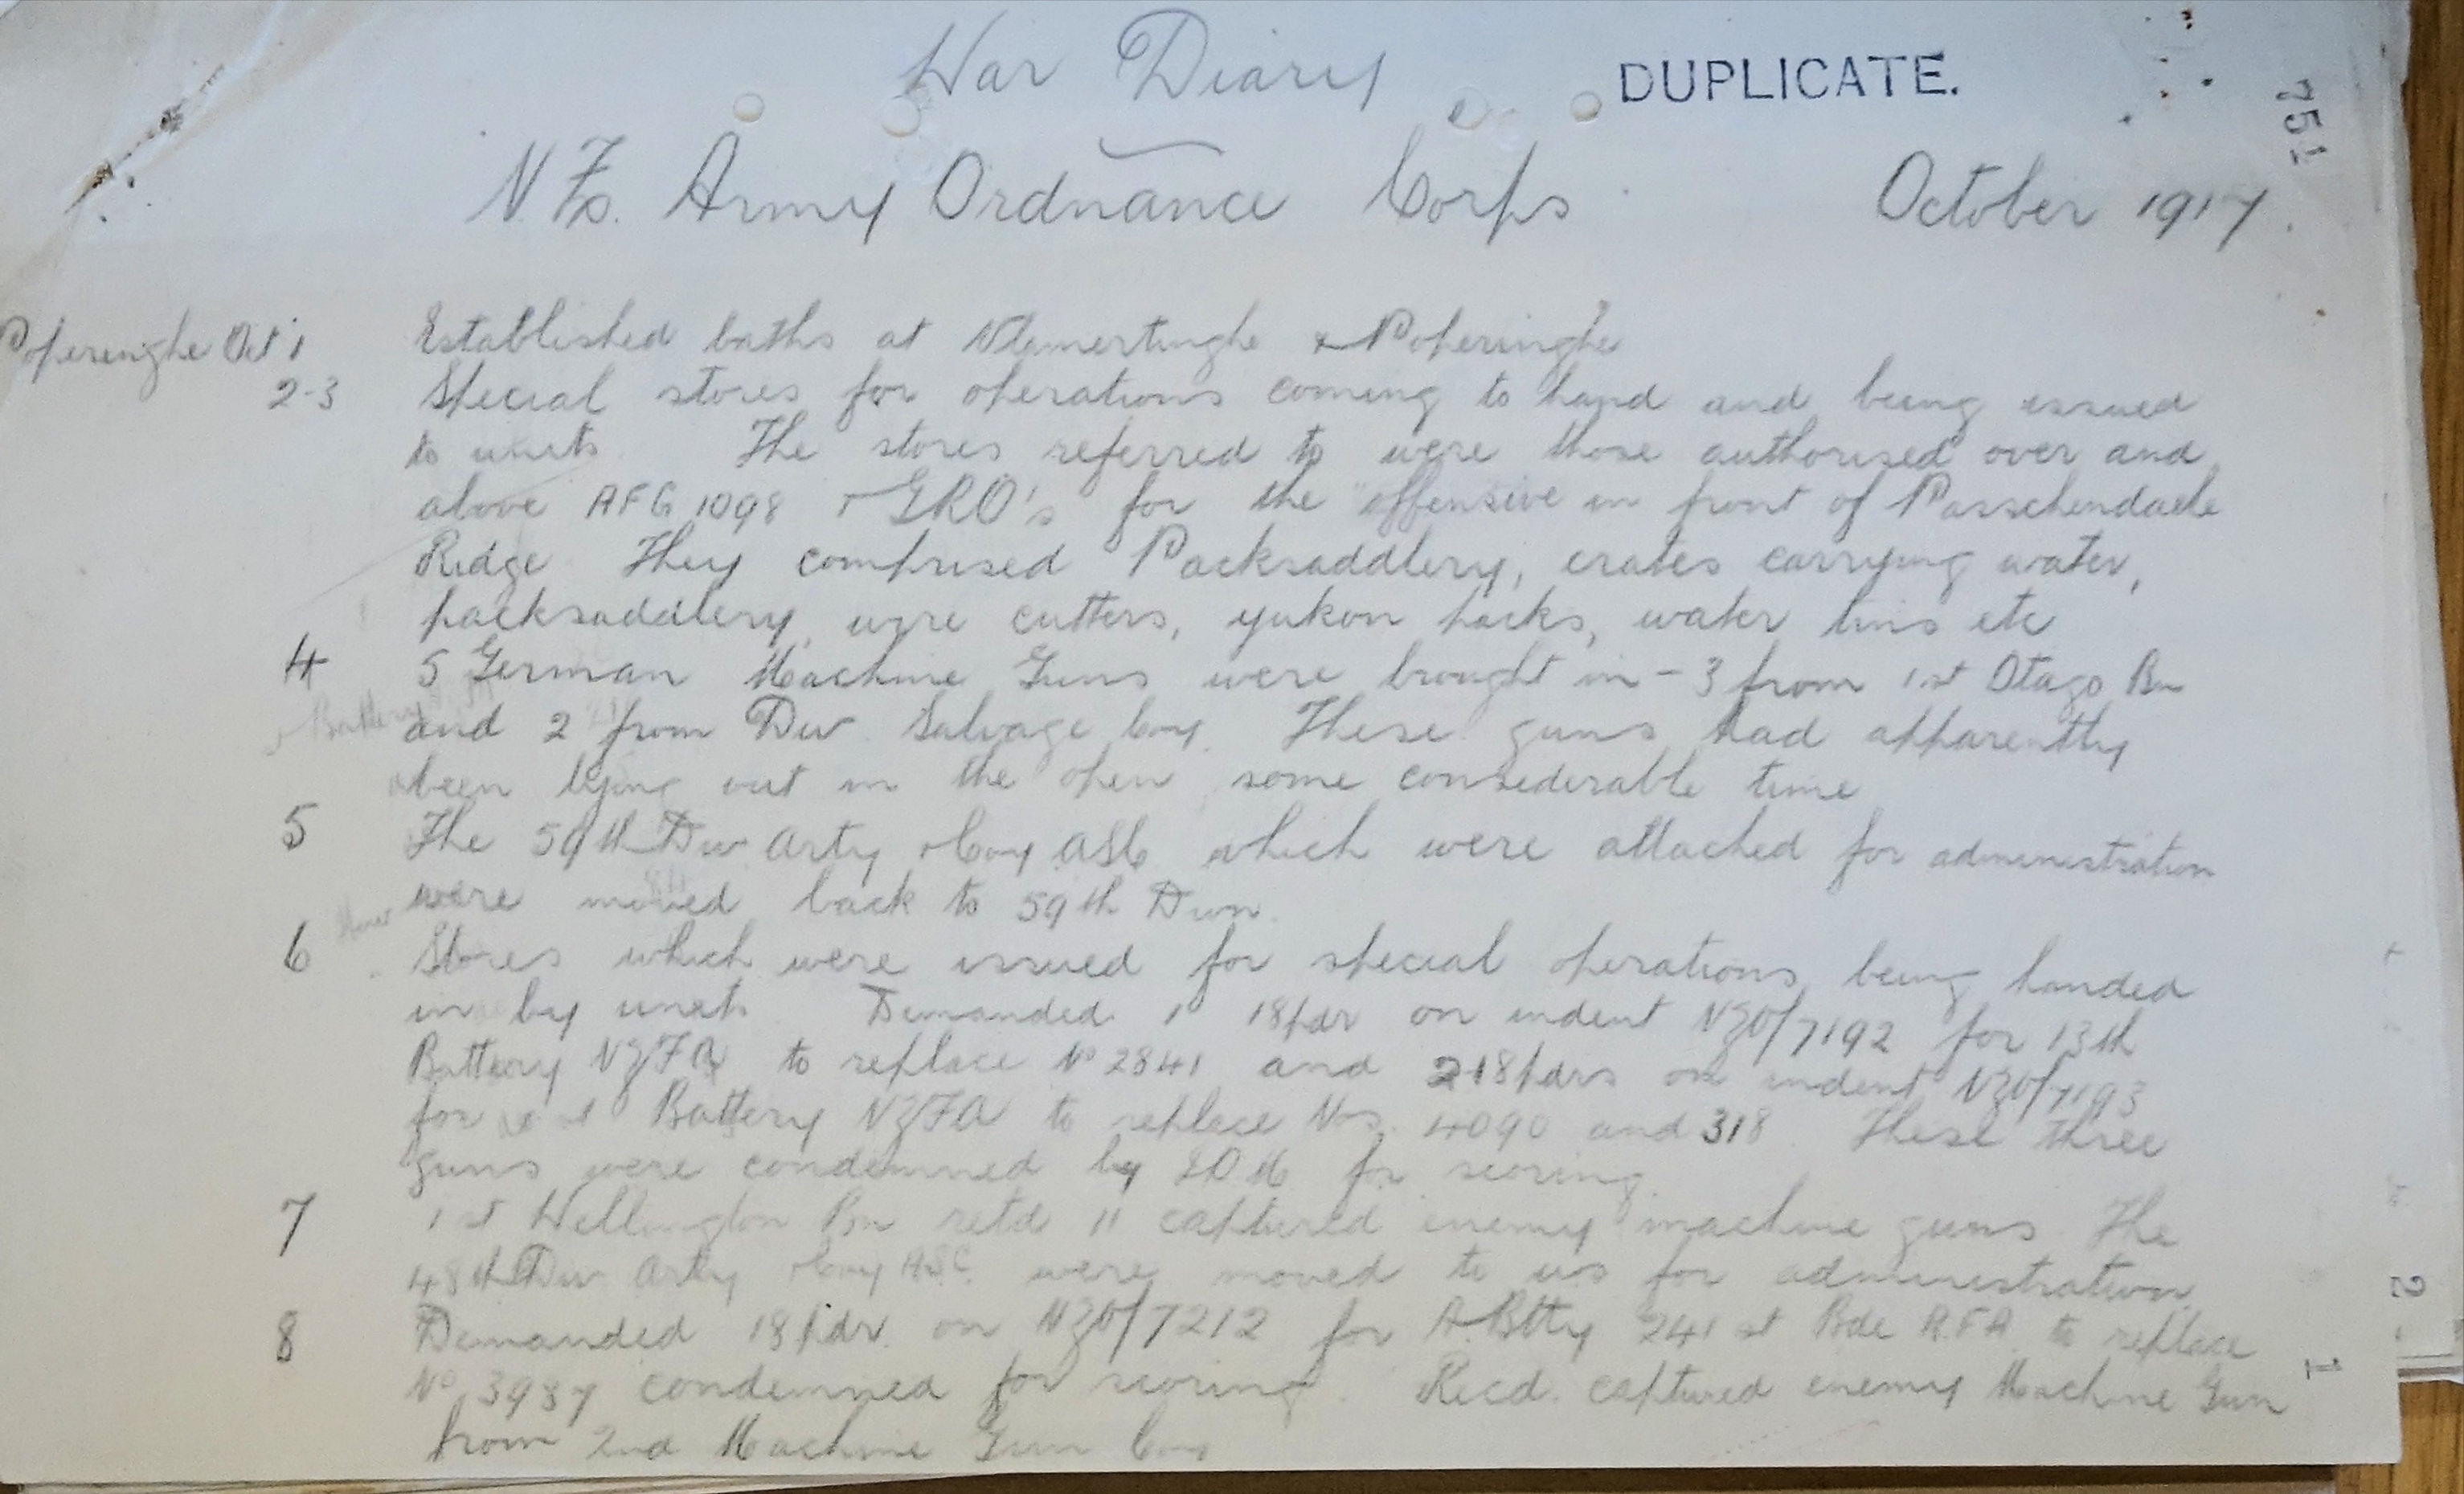 War Diary
DUPLICATE.
751
N. Zs. Army Ordnance Corps
October 1917.
Poperinghe Oct 1 Established baths at Vlamertinghe & Poperinghe
2-3 Special stores for operations coming to hand and being issued
to units. The stores referred to were those authorised over and
above AFG 1098 & GRO's for the offensive in front of Passchendaele
Ridge They comprised Packsaddlery, crates carrying water,
packsaddlery, wire cutters, yukon packs, water tins etc
4 5 German Machine Guns were brought in - 3 from 1st Otago Bn
and 2 from Div. Salvage Coy. These guns had apparently
been lying out in the open some considerable time
5 The 59th Div Arty & Coy ASC which were attached for administration
were moved back to 59th Divn.
6 Stores which were issued for special operations being handed
in by units. Demanded 1 18pdr on indent NZO/7192 for 13th
Battery NZFA to replace No 2841 and 2 18pdrs on indent NZO/7193
for Battery NZFA to replace Nos. 4090 and 318. These three
guns were condemned by IOM for scoring.
7 1st Wellington Bn retd 11 captured enemy machine guns. The
48th Div Arty & Coy ASC. were moved to us for administration
8 Demanded 18pdr. on NZO/7212 for A. Btty 241st Bde R.F.A. to replace
No 3987 condemned for scoring. Recd. captured enemy Machine Gun
from 2nd Machine Gun Coy
2
1